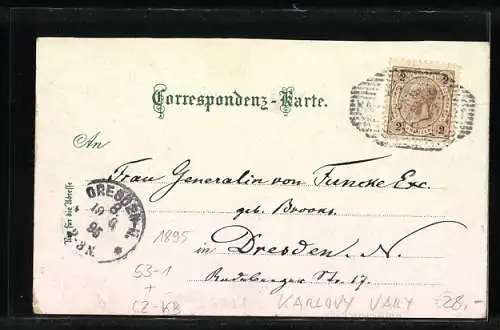 2 2
2 2
Correspondenz-Karte.
An
Frau Generalin von Funcke Exc.
geb. Brooks.
in Dresden. N.
Radeberger Str. 17.
Nur für die Adresse
DRESDEN-N.
8
6
95
1895
53-1
+
CZ-KB
KARLOVY VARY
28,-